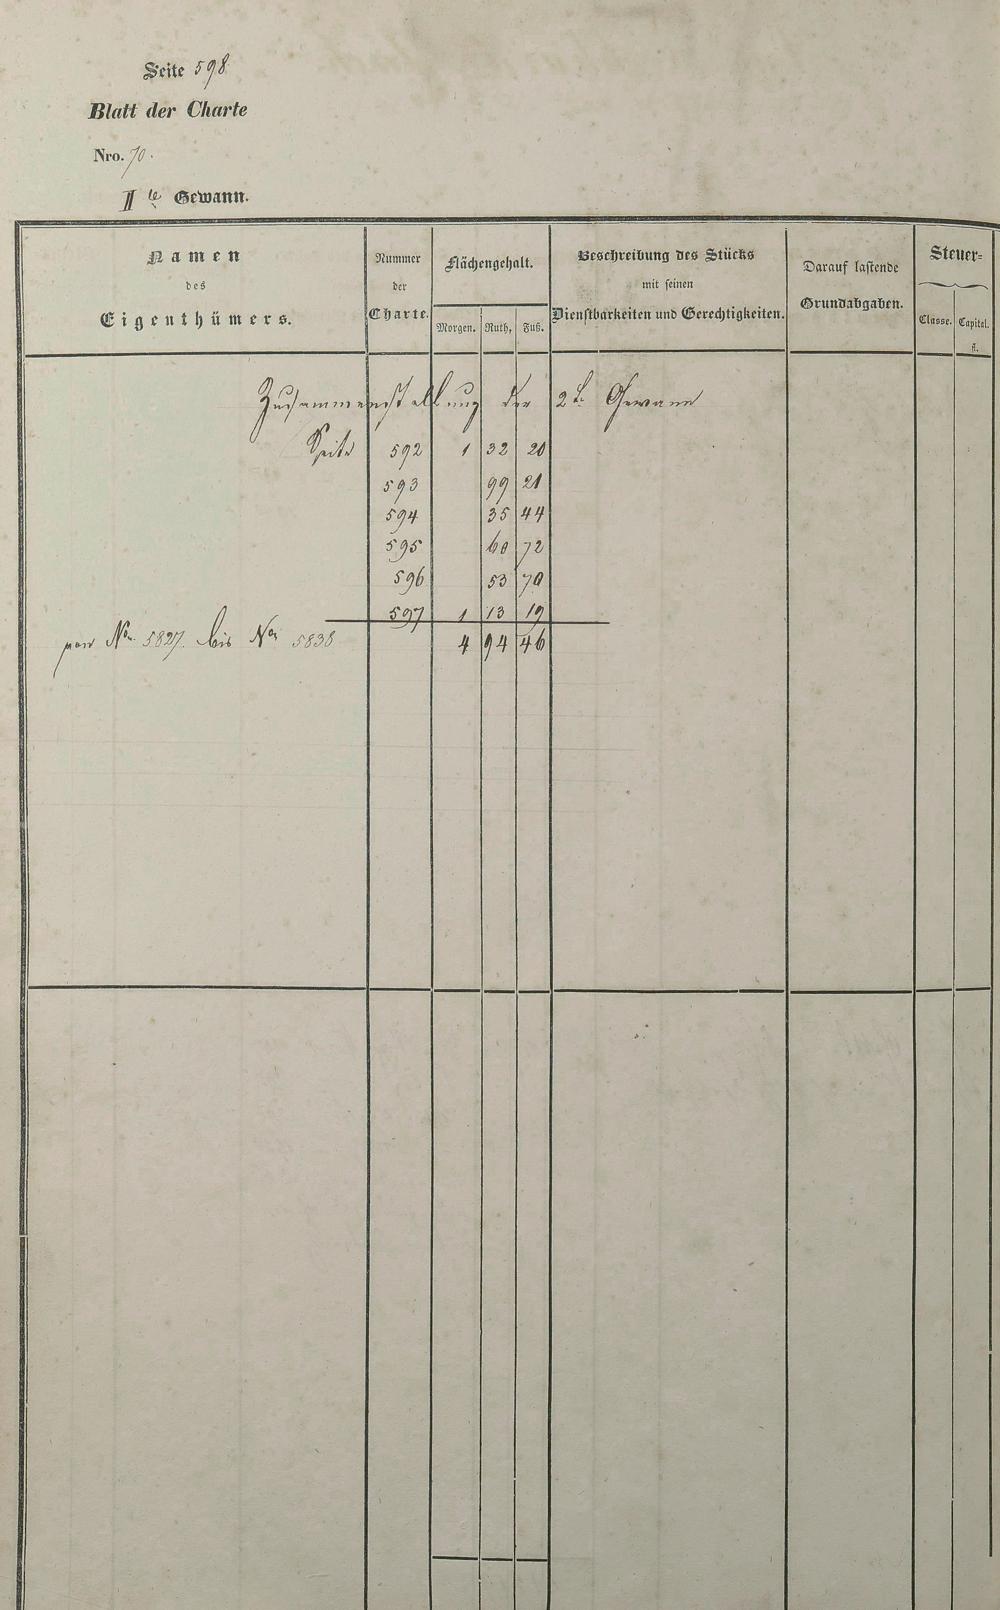 Seite 598
Blatt der Charte
Nro. 70.
II te Gewann.
Namen des Eigenthümers.
Nummer der Charte.
Flächengehalt.
Morgen. Ruth. Fuß.
Beschreibung des Stücks mit seinen Dienstbarkeiten und Gerechtigkeiten.
Darauf lastende Grundabgaben.
Steuer=
Classe. Capital.
fl.
Zusammenstellung der 2te Gewann
Seite 592 1 32 20
593 99 21
594 35 44
595 60 72
596 53 70
597 1 13 19
von Nro 5827. bis Nro 5838 4 94 46